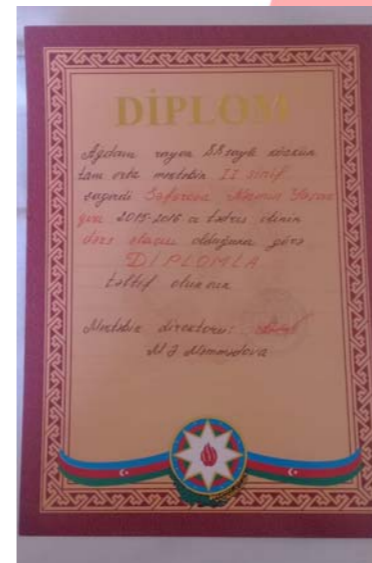 DİPLOM
Ağdam rayon saylı
tam orta məktəbin II sinif
şagirdi Səfərova
qızı 2015-2016 cı tədris ilinin
dərs əlaçısı olduğuna görə
DİPLOMLA
təltif olunur
Məktəbin direktoru:
M Ə Məmmədova